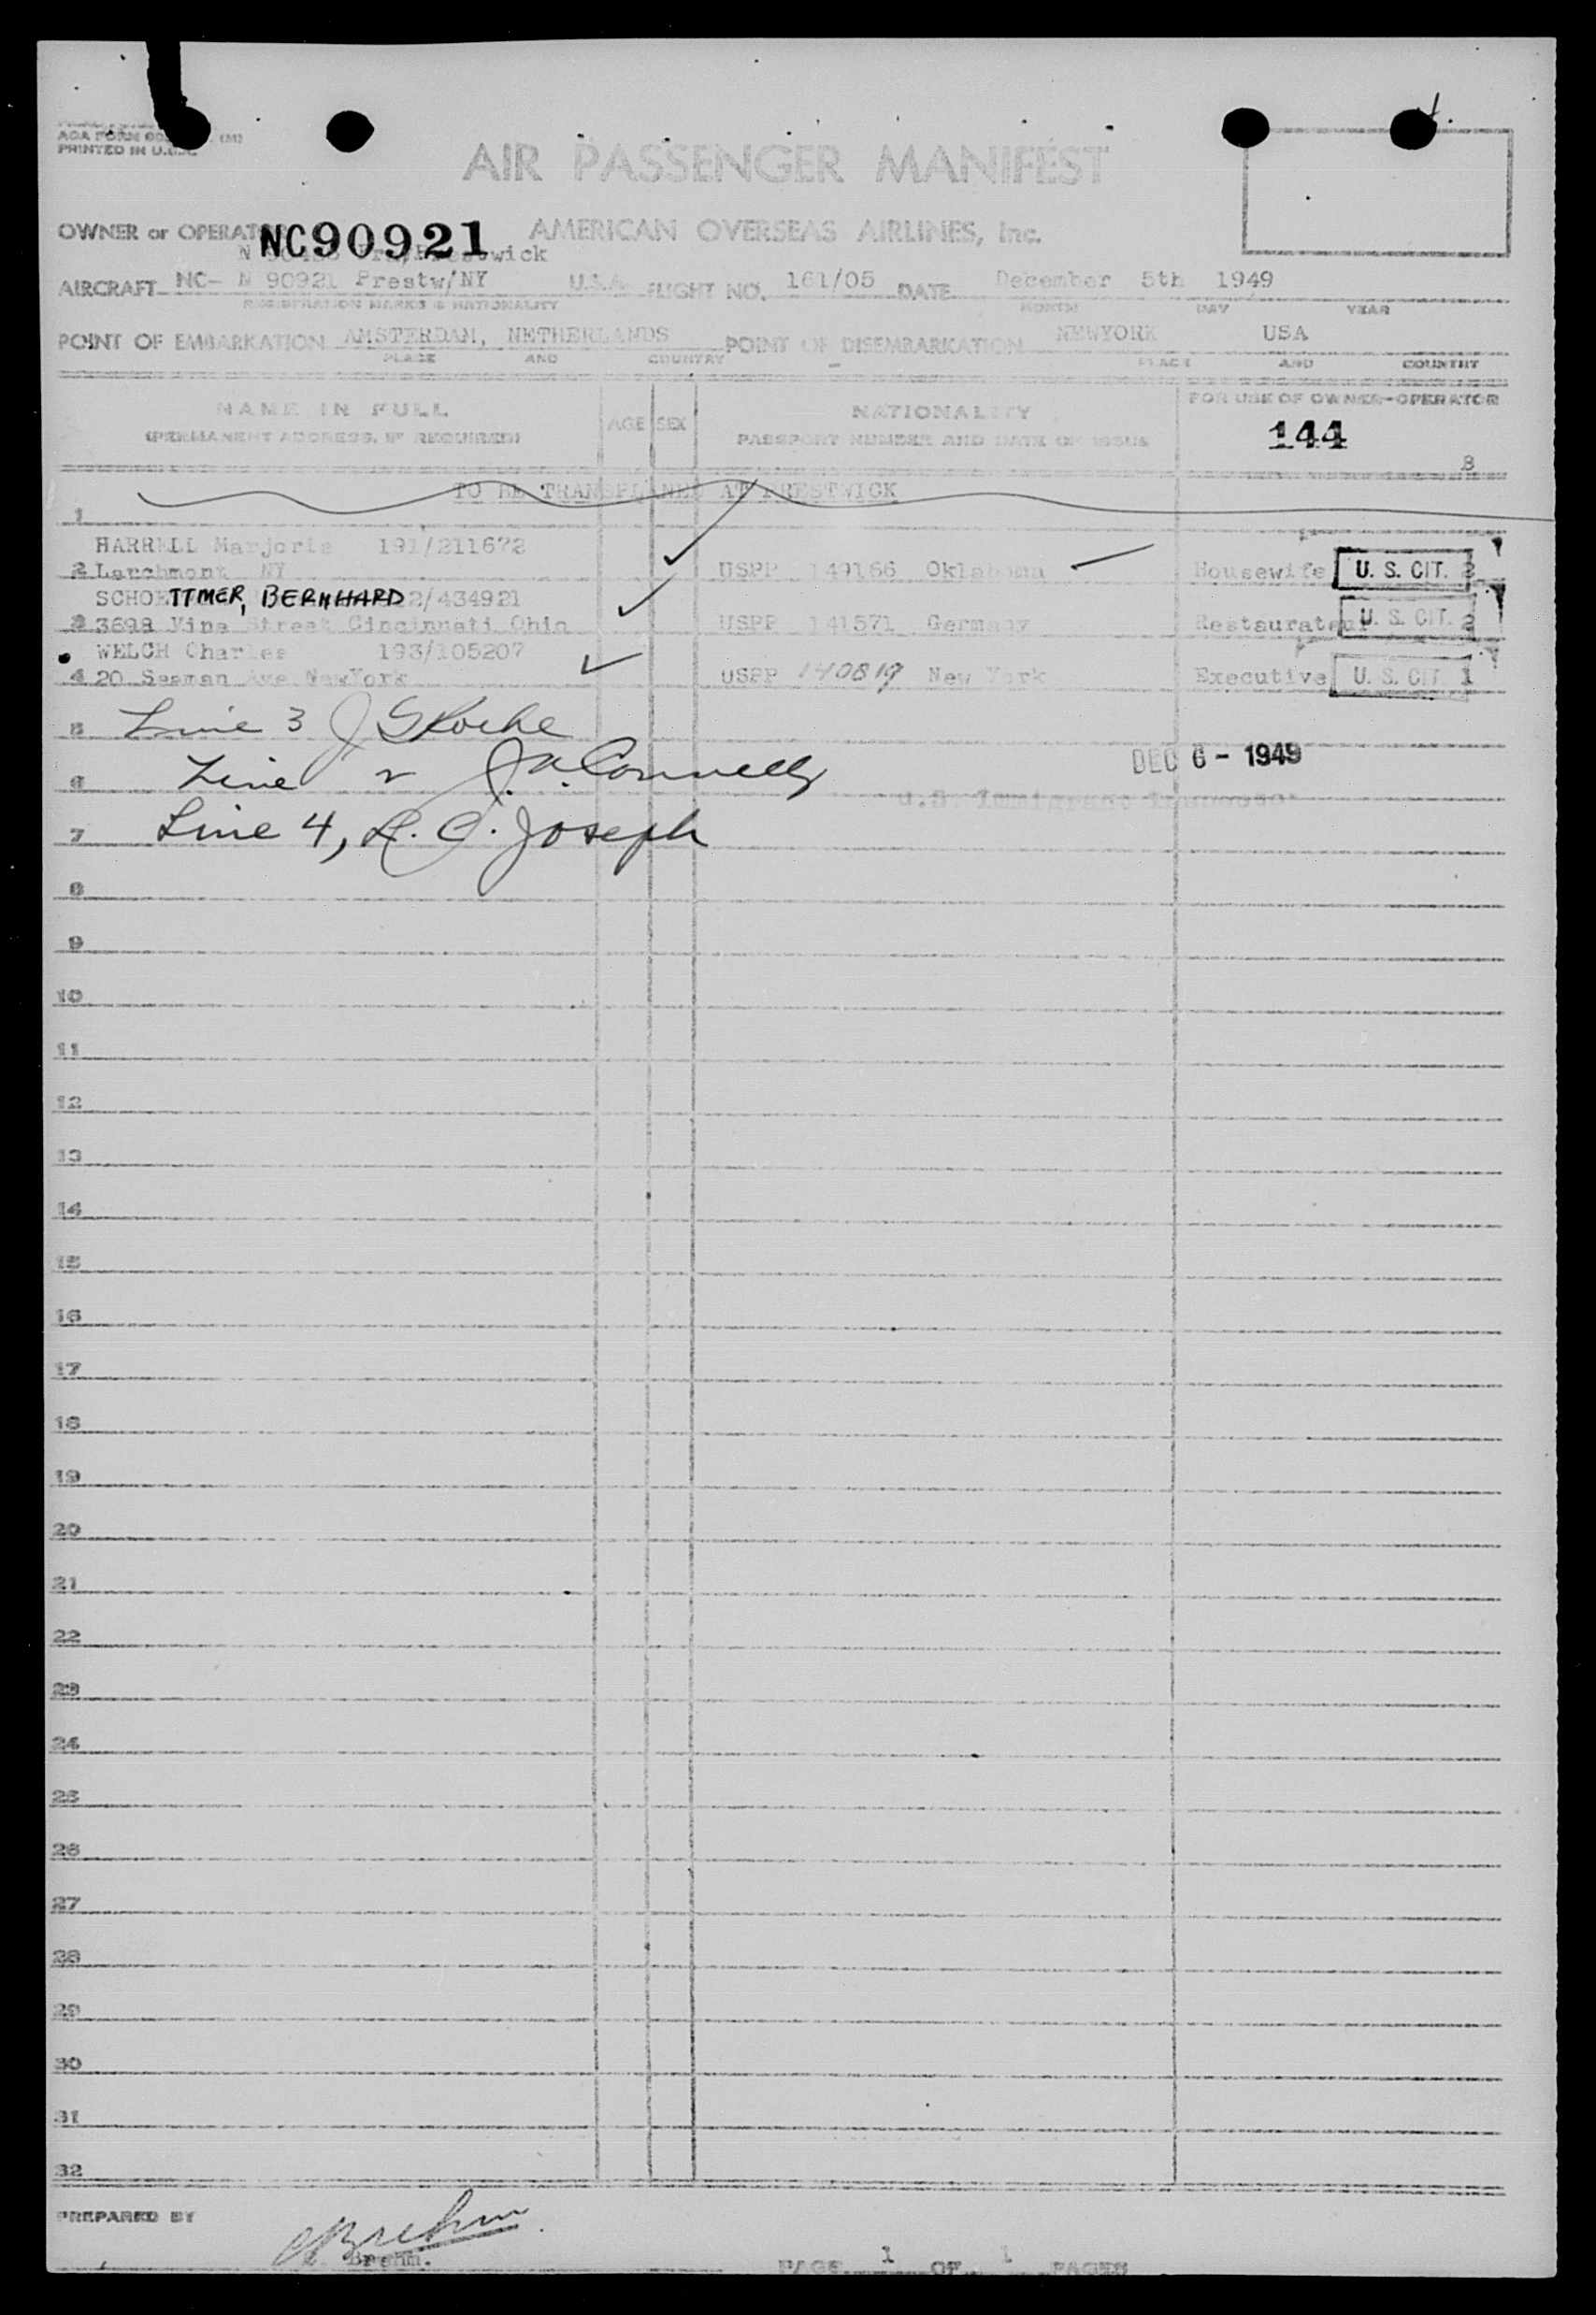 AOA FORM
PRINTED IN U.S.A.
AIR PASSENGER MANIFEST
OWNER or OPERATOR NC90921 AMERICAN OVERSEAS AIRLINES, Inc.
Prestwick
AIRCRAFT NC- N 90921 Prestw/NY U.S.A. FLIGHT NO. 161/05 DATE December 5th 1949
REGISTRATION MARKS & NATIONALITY MONTH DAY YEAR
POINT OF EMBARKATION AMSTERDAM, NETHERLANDS POINT OF DISEMBARKATION NEWYORK USA
PLACE AND COUNTRY PLACE AND COUNTRY
NAME IN FULL AGE SEX NATIONALITY FOR USE OF OWNER-OPERATOR
(PERMANENT ADDRESS, IF REQUIRED) PASSPORT NUMBER AND DATE OF ISSUE 144
8
TO BE TRANSPLANED AT PRESTWICK
1
HARRELL Marjorie 191/211672
2 Larchmont NY USPP 149166 Oklahoma Housewife U. S. CIT. 2
SCHOETTMER, BERNHARD 2/434921
3 3698 Vine Street Cincinnati Ohio USPP 141571 Germany Restaurateur U. S. CIT. 2
WELCH Charles 193/105207
4 20 Seaman Ave NewYork USPP 140819 New York Executive U. S. CIT. 1
5 Line 3 J
6 Line 2 J. A. Connelly DEC 6 - 1949
U.S. Immigrant Inspector
7 Line 4, L. C. Joseph
8
9
10
11
12
13
14
15
16
17
18
19
20
21
22
23
24
25
26
27
28
29
30
31
32
PREPARED BY Brehm
Brehm.
PAGE 1 OF 1 PAGES